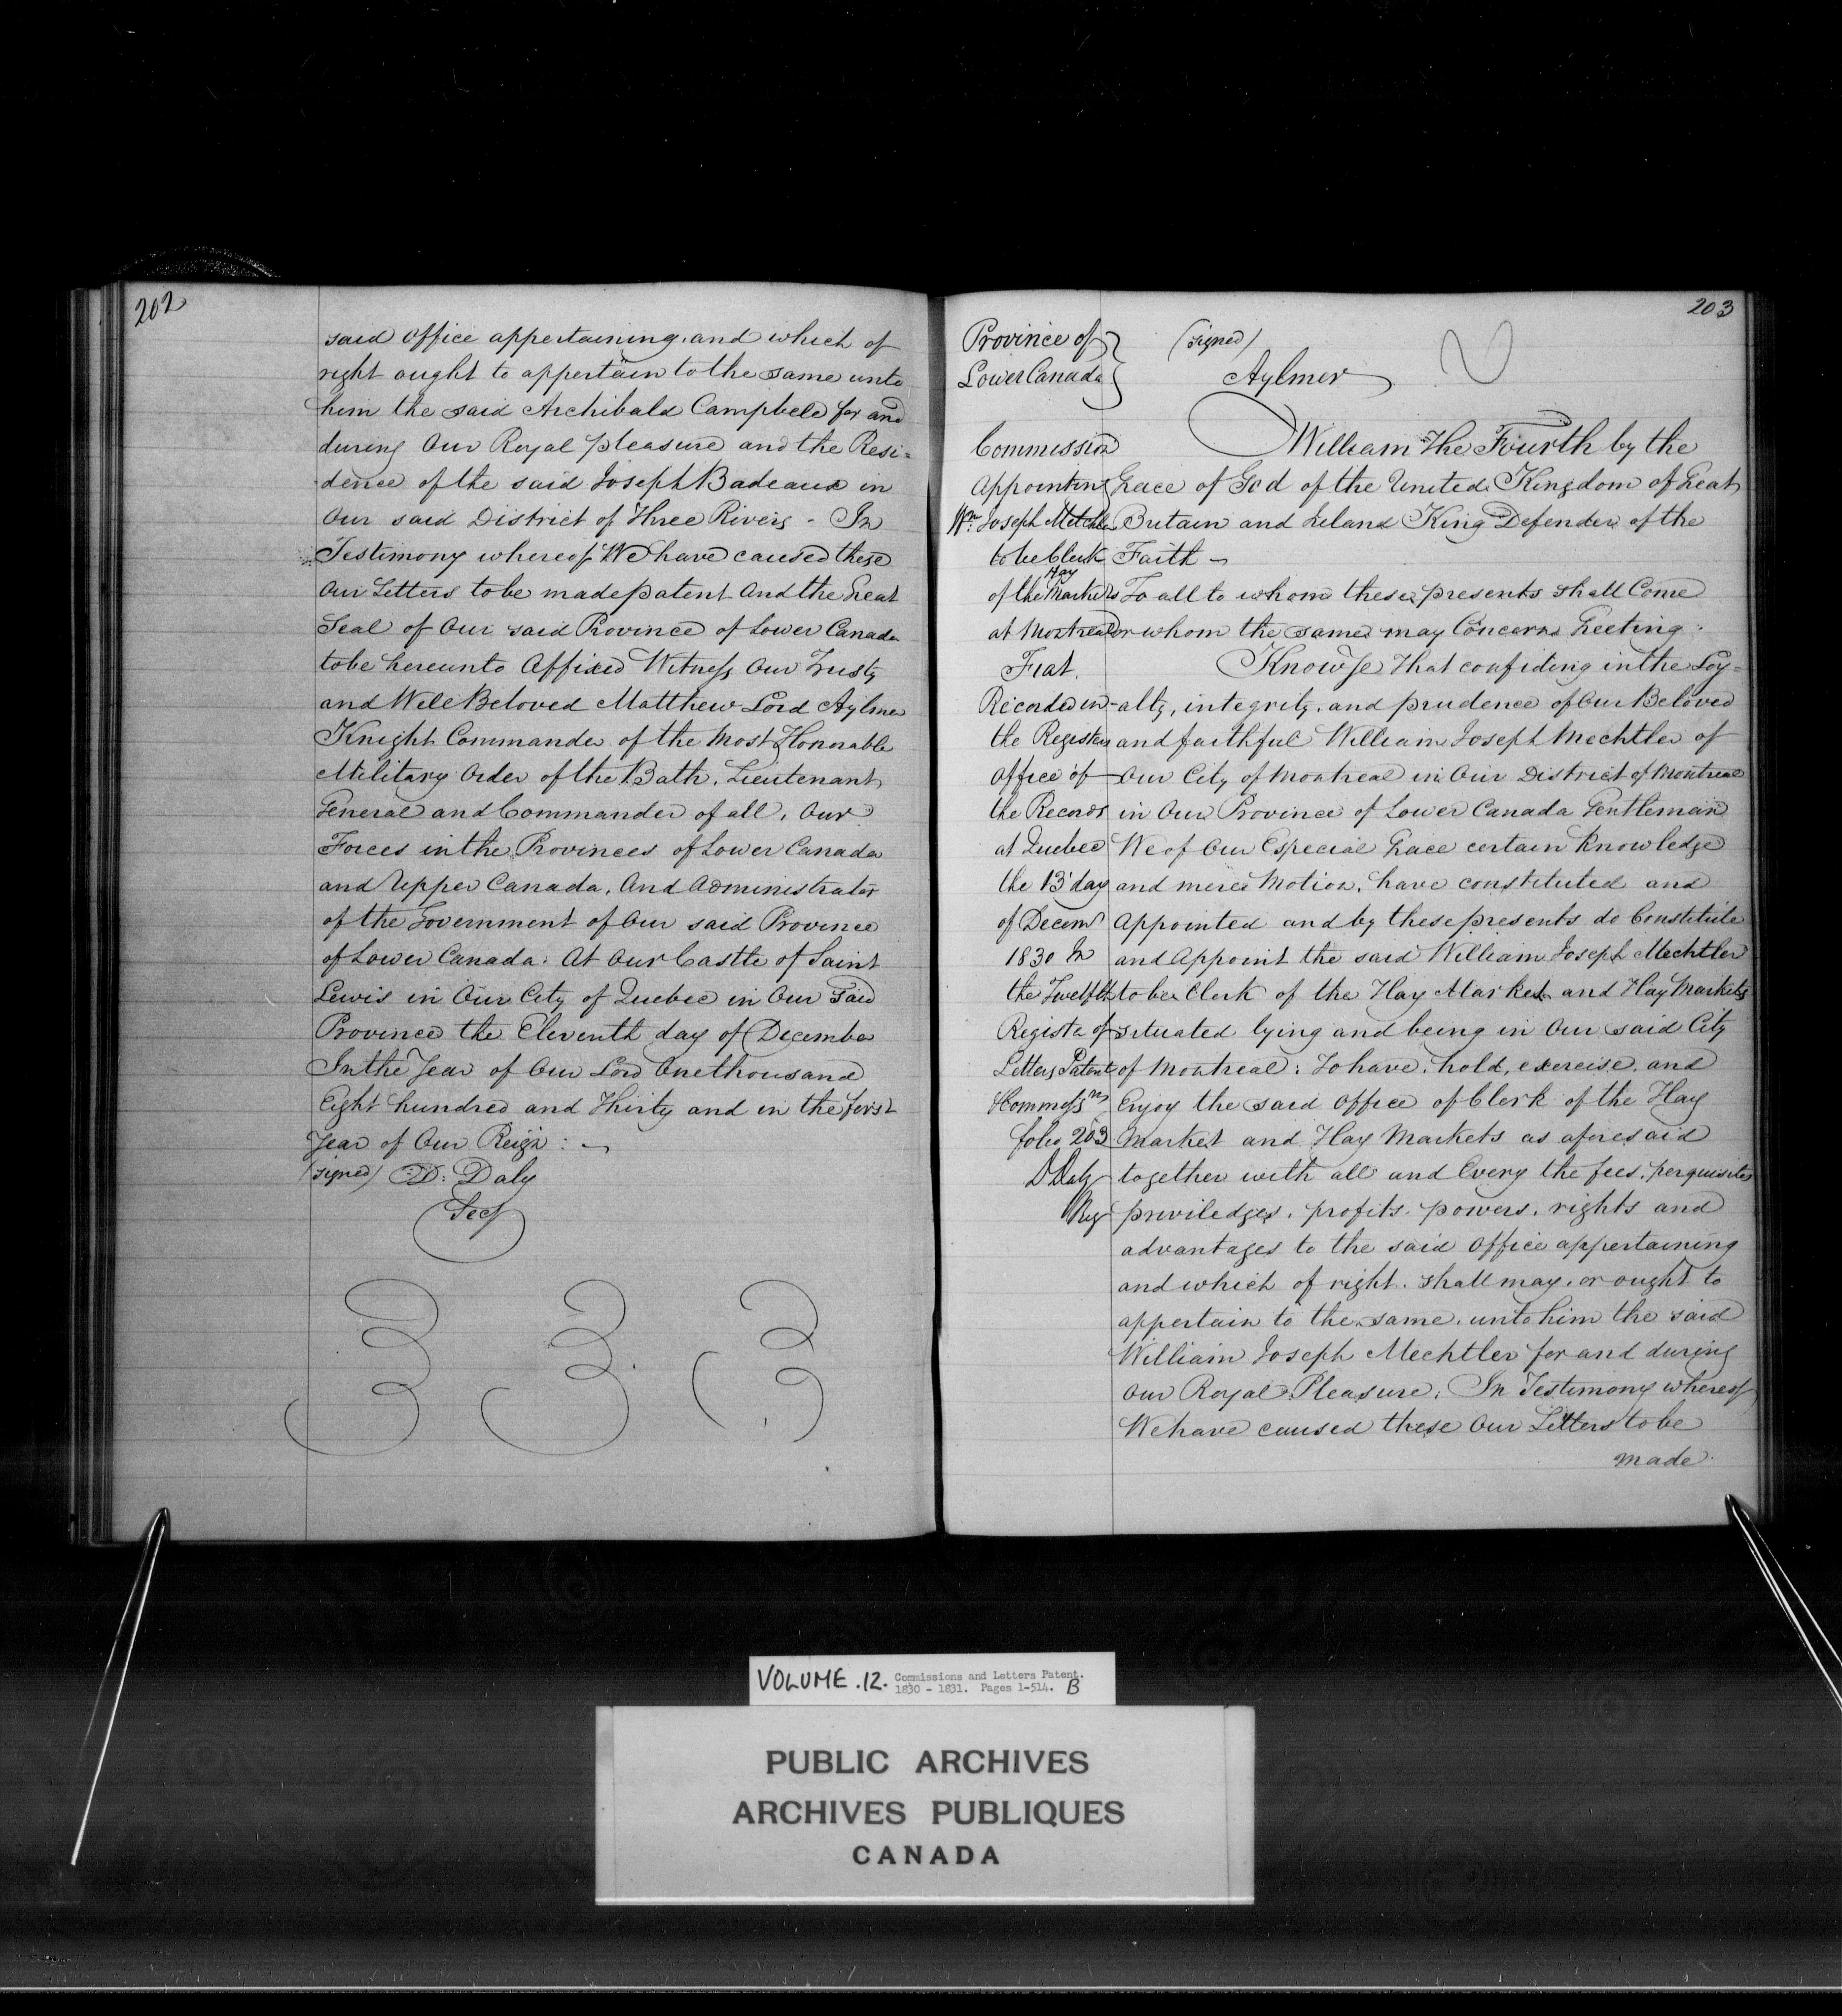 202
said office appertaining, and which of
right ought to appertain to the same unto
him the said Archibald Campbell for and
during Our Royal pleasure and the Resi=
dence of the said Joseph Badeaux in
Our said District of Three Rivers - In
Testimony whereof We have caused these
Our Letters to be made patent and the Great
Seal of Our said Province of Lower Canada
to be hereunto Affixed Witness Our Trusty
and Well Beloved Matthew Lord Aylmer
Knight Commander of the Most Honorable
Military Order of the Bath, Lieutenant
General and Commander of all, Our
Forces in the Provinces of Lower Canada
and Upper Canada, and Administrator
of the Government of Our said Province
of Lower Canada. At Our Castle of Saint
Lewis in Our City of Quebec in Our Said
Province the Eleventh day of December
In the Year of Our Lord One thousand
Eight hundred and Thirty and in the first
Year of Our Reign: -
(signed) D: Daly
Secy
203
Province of
Lower Canada
(signed)
Aylmer
Commission
Appointing
Wm. Joseph Metchler
to be Clerk
of the Hay Markets
at Montreal
Fiat.
Recorded in
the Registers
Office of
the Records
at Quebec
the 13' day
of Decemr
1830 In
the Twelfth
Register of
Letters Patent
& Commissns
folio 203
D Daly
Reg
William The Fourth by the
Grace of God of the United Kingdom of Great
Britain and Ireland King Defender of the
Faith -
To all to whom these presents shall Come
or whom the same may Concern Greeting:
Know Ye That confiding in the Loy=
-alty, integrity, and prudence of Our Beloved
and faithful William Joseph Mechtler of
Our City of Montreal in Our District of Montreal
in Our Province of Lower Canada Gentleman
We of Our Especial Grace certain Knowledge
and mere Motion, have constituted and
Appointed and by these presents do Constitute
and Appoint the said William Joseph Mechtler
to be Clerk of the Hay Market and Hay Markets
situated lying and being in Our said City
of Montreal: To have, hold, exercise, and
Enjoy the said Office of Clerk of the Hay
Market and Hay Markets as aforesaid
together with all and Every the fees, perquisites
priviledges, profits, powers, rights and
advantages to the said Office appertaining
and which of right, shall may, or ought to
appertain to the same, unto him the said
William Joseph Mechtler for and during
Our Royal Pleasure; In Testimony whereof
We have caused these Our Letters to be
made
VOLUME .12. Commissions and Letters Patent.
1830 - 1831. Pages 1-514. B
PUBLIC ARCHIVES
ARCHIVES PUBLIQUES
CANADA